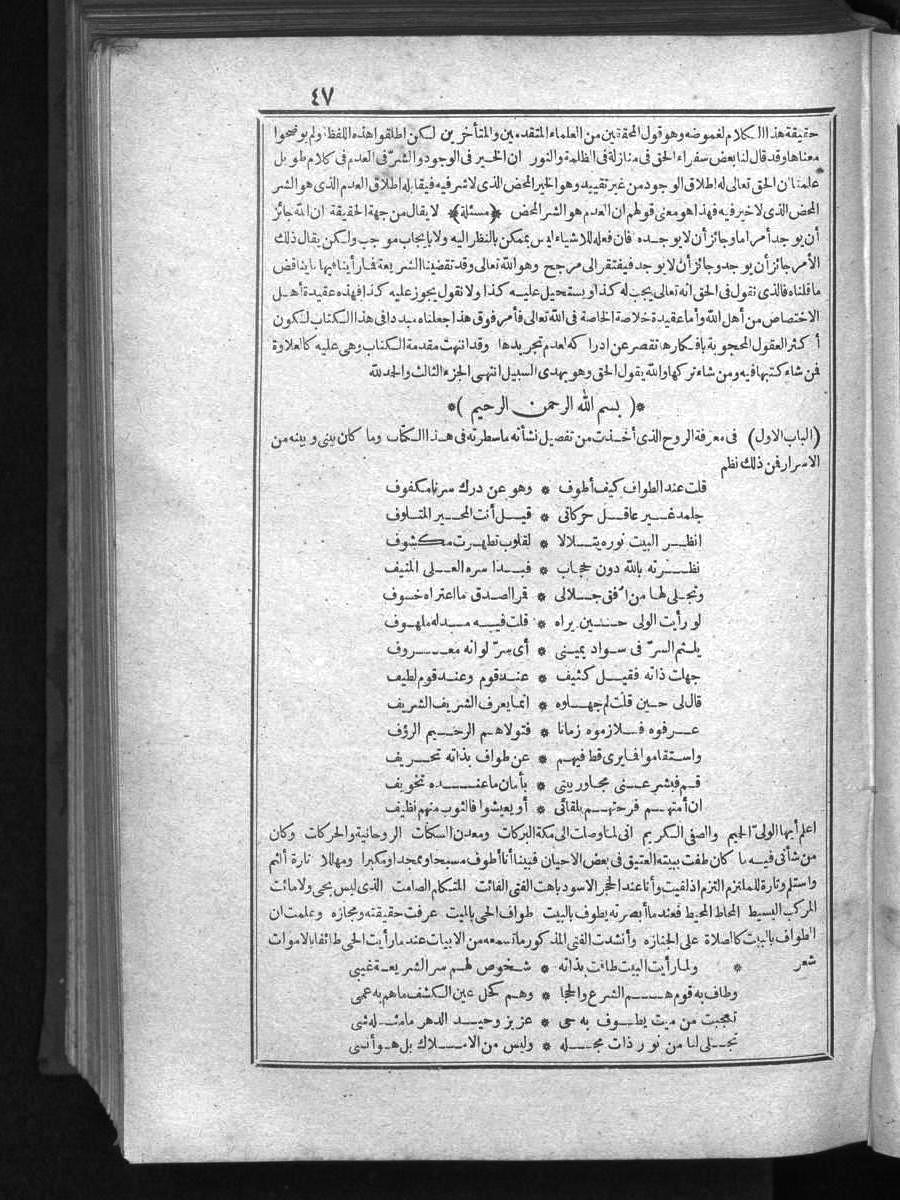 ٤٧
حقيقة هذا الكلام لغموضه وهو قول المحققين من العلماء المتقدمين والمتأخرين لكن اطلقوا هذه اللفظة ولم يوضحوا
معناها وقد قال لنا بعض سفراء الحق فى منازلة فى الظلمة والنور ان الخير فى الوجود والشر فى العدم فى كلام طويل
علمنا ان الحق تعالى له اطلاق الوجود من غير تقييد وهو الخير المحض الذى لا شر فيه فيقابله اطلاق العدم الذى هو الشر
المحض الذى لا خير فيه فهذا هو معنى قولهم ان العدم هو الشر المحض ﴿مسئلة﴾ لا يقال من جهة الحقيقة ان الله جائز
أن يوجد أمرا ما وجائز أن لا يوجده فان فعله للاشياء ليس بممكن بالنظر اليه ولا بايجاب موجب ولكن يقال ذلك
الأمر جائز أن يوجد وجائز أن لا يوجد فيفتقر الى مرجح وهو الله تعالى وقد تقضينا الشريعة فما رأينا فيها ما يناقض
ما قلناه فالذى نقول فى الحق انه تعالى يجب له كذا ويستحيل عليه كذا ولا نقول يجوز عليه كذا فهذه عقيدة أهل
الاختصاص من أهل الله وأما عقيدة خلاصة الخاصة فى الله تعالى فأمر فوق هذا جعلناه مبددا فى هذا الكتاب لكون
أكثر العقول المحجوبة بافكارها تقصر عن ادراكه لعدم تجريدها وقد انتهت مقدمة الكتاب وهى عليه كالعلاوة
فمن شاء كتبها فيه ومن شاء تركها والله يقول الحق وهو يهدى السبيل انتهى الجزء الثالث والحمد لله
*( بسم الله الرحمن الرحيم )*
(الباب الاول) فى معرفة الروح الذى أخذت من تفصيل نشأته ما سطرته فى هذا الكتاب وما كان بينى وبينه من
الاسرار فمن ذلك نظم
قلت عند الطواف كيف أطوف * وهو عن درك سرنا مكفوف
جلمد غير عاقل حركاتى * قيل أنت المحير المتلوف
انظر البيت نوره يتلالا * لقلوب تطهرت مكشوف
نظرته بالله دون حجاب * فبدا سره العلى المنيف
وتجلى لها من افق جلالى * قمر الصدق ما اعتراه خسوف
لو رأيت الولى حين يراه * قلت فيه مدله ملهوف
يلثم السرّ فى سواد يمينى * أى سرّ لو انه معروف
جهلت ذاته فقيل كثيف * عند قوم وعند قوم لطيف
قال لى حين قلت لم جهلوه * انما يعرف الشريف الشريف
عرفوه فلازموه زمانا * فتولاهم الرحيم الرؤف
واستقاموا فما يرى قط فيهم * عن طواف بذاته تحريف
قم فبشر عنى مجاور بيتى * بأمان ما عنده تخويف
ان أمتهم فرحتهم بلقائى * أو يعيشوا فالثوب منهم نظيف
اعلم أيها الولىّ الحميم والصفى الكريم انى لما وصلت الى مكة البركات ومعدن السكنات الروحانية والحركات وكان
من شأنى فيه ما كان طفت ببيته العتيق فى بعض الاحيان فبينا أنا أطوف مسبحا وممجدا ومكبرا ومهللا تارة ألثم
واستلم وتارة للملتزم التزم اذ لقيت وأنا عند الحجر الاسود باهت الفتى الفائت المتكلم الصامت الذى ليس بحى ولا مائت
المركب البسيط المحاط المحيط فعندما أبصرته يطوف بالبيت طواف الحى بالميت عرفت حقيقته ومجازه وعلمت ان
الطواف بالبيت كالصلاة على الجنازه وأنشدت الفتى المذكور ما تسمعه من الابيات عندما رأيت الحى طائفا بالاموات
شعر * ولما رأيت البيت طافت بذاته * شخوص لهم سر الشريعة غيبى
وطاف به قوم هم الشرع والحجا * وهم كحل عين الكشف ما هم به عمى
تعجبت من ميت يطوف به حى * عزيز وحيد الدهر ما مثله شى
تجلى لنا من نور ذات مجله * وليس من الاملاك بل هو أنسى